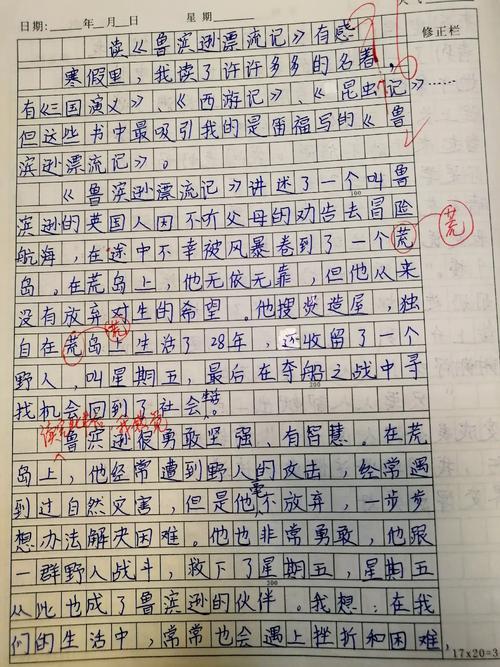 日期:____年__月__日 星期____
修正栏
读《鲁滨逊漂流记》有感
寒假里,我读了许许多多的名著,
有《三国演义》、《西游记》、《昆虫记》……
但这些书中最吸引我的是雷福写的《鲁
滨逊漂流记》。
《鲁滨逊漂流记》讲述了一个叫鲁
100
滨逊的英国人因不听父母的劝告去冒险
航海,在途中不幸被风暴卷到了一个荒
荒
岛。在荒岛上,他无依无靠,但他从来
没有放弃对生的希望。他搜 造屋,独
荒
自在荒岛上生活了28年,还收留了一个
野人,叫星期五,最后在夺船之战中寻
200
找机会回到了社会。
鲁滨逊很勇敢坚强、有智慧。在荒
岛上,他经常遭到野人的攻击,经常遇
到过自然灾害,但是他不放弃,一步步
想办法解决困难。他也非常勇敢,他跟
一群野人战斗,救下了星期五,星期五
300
从此也成了鲁滨逊的伙伴。我想:在我
们的生活中,常常也会遇上挫折和困难,
17×20=3